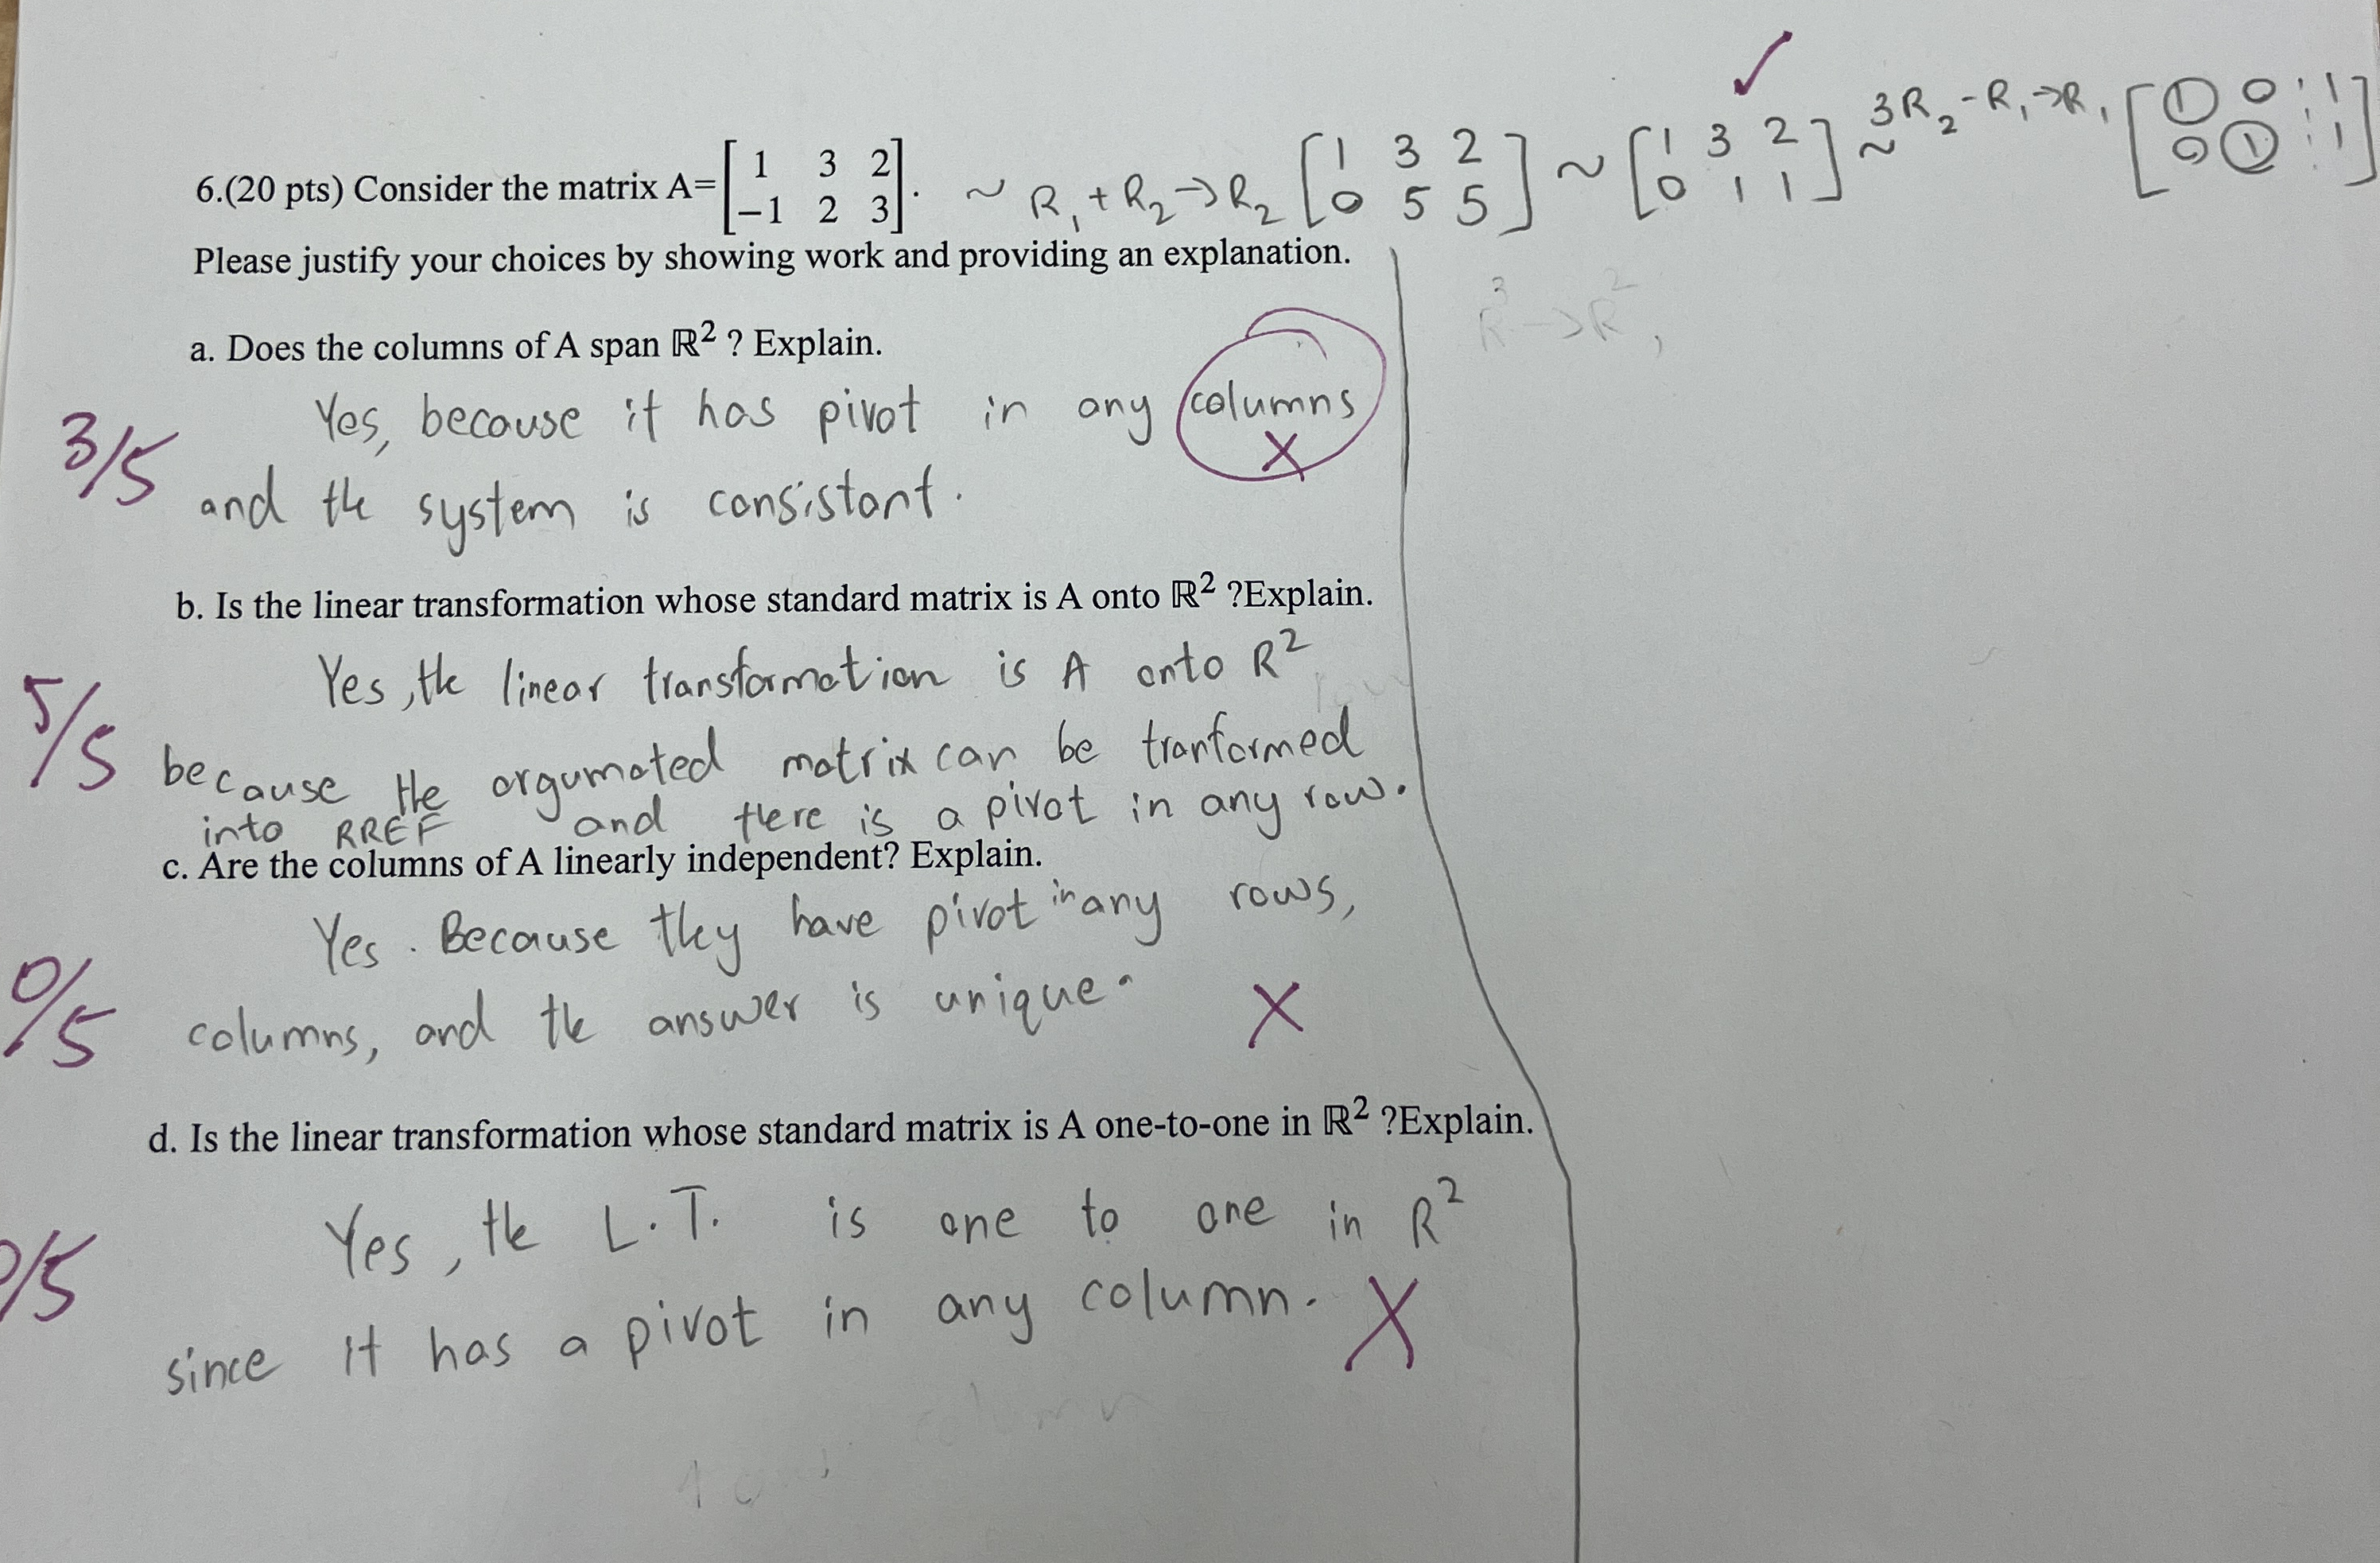 ✓
6.(20 pts) Consider the matrix A= [1 3 2; −1 2 3]. ~ R₁ + R₂ → R₂ [1 3 2; 0 5 5] ~ [1 3 2; 0 1 1] ~ 3R₂ - R₁ → R₁ [1 0 ⋮ 1; 0 1 ⋮ 1]
Please justify your choices by showing work and providing an explanation.
R³ → R²,
a. Does the columns of A span ℝ² ? Explain.
Yes, because it has pivot in any columns
X
3/5
and the system is consistant.
b. Is the linear transformation whose standard matrix is A onto ℝ² ?Explain.
Yes, the linear transformation is A onto R²
5/5
because the argumated matrix can be tranformed
into RREF and there is a pivot in any row.
c. Are the columns of A linearly independent? Explain.
Yes. Because they have pivot in any rows,
0/5
columns, and the answer is unique.
X
d. Is the linear transformation whose standard matrix is A one-to-one in ℝ² ?Explain.
Yes, the L.T. is one to one in R²
/5
since it has a pivot in any column.
X